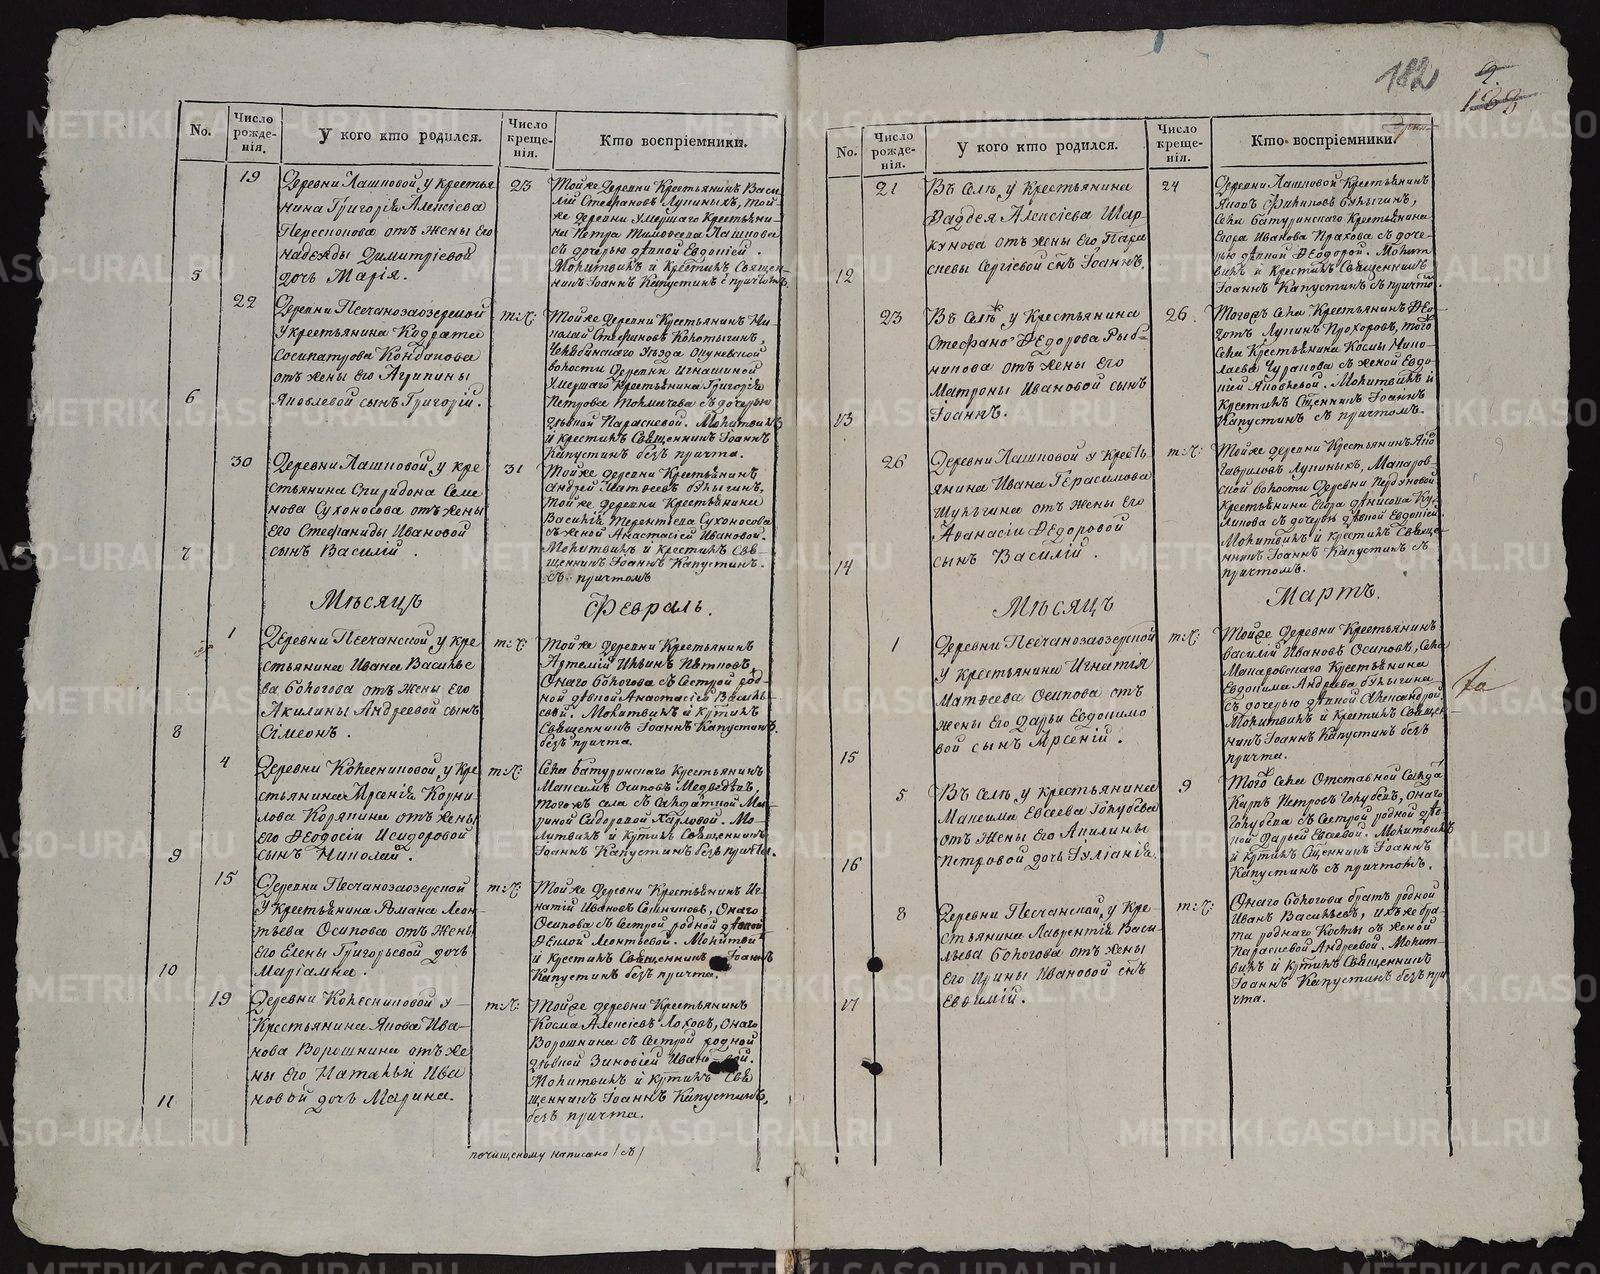 No.
Число рожде-нія.
У кого кто родился.
Число креще-нія.
Кто воспріемники.
19
Деревни Лашповой, у крестья
нина Григорія Алексіева
от жены Его
надежды Димитріевой
5
дочь Марія.
23
Той же Деревни Крестьянинъ Васи
лій Стефановъ Лупиныхъ, той
же деревни умершаго Крестьяни
на Петра Тимофеева Лашпова
съ дочерью дѣвкой Евдокіей.
Молитвилъ и Крестилъ Священ
никъ Іоаннъ Капустинъ с причтомъ
22
Деревни Песчанозаозерской
у крестьянина Кодрата
Сосипатрова
отъ жены Его Агрипины
6
Яковлевой сынъ Григорій.
т:л:
Той же Деревни Крестьянинъ Ни
колай Стефановъ
Челябинскаго уѣзда Окуневской
волости Деревни Игнашиной
умершаго Крестьянина Григорія
Петрова съ дочерью
дѣвкой Парасковой. Молитвилъ
и крестилъ Священникъ Іоаннъ
Капустинъ безъ причта.
30
Деревни Лашповой, у кре
стьянина Спиридона Семе
нова Сухоносова отъ жены
Его Стефаниды Ивановой
7
сынъ Василій.
31
Той же деревни Крестьянинъ
Андрей Матвеевъ Булыгинъ,
той же деревни Крестьянина
Василія Терентіева Сухоносова
съ женой Анастасіей Ивановой.
Молитвилъ и крестилъ Свя-
щенникъ Іоаннъ Капустинъ.
съ причтомъ
Мѣсяцъ
Февраль.
1
Деревни Песчанской, у кре
стьянина Ивана Василье
ва Бологова отъ жены Его
Акилины Андреевой сынъ
8
Симеонъ.
т:л:
Той же деревни Крестьянинъ
Артемій Ильинъ
Онаго Бологова съ Сестрой род
ной дѣвкой Анастасіей Василь
евой. Молитвилъ и кртилъ
Священникъ Іоаннъ Капустинъ.
безъ причта.
4
Деревни Колесниковой, у кре
стьянина Арсенія Корни
лова Корякина отъ жены
Его Феодосіи Исидоровой
9
сынъ Николай.
т:л:
Села Батуринскаго крестьянинъ
Максимъ Осиповъ Медведевъ,
тогожъ села съ Салдатной Ма
риной Сидоровой Карповой. Мо-
литвилъ и кртилъ Священникъ
Іоаннъ Капустинъ безъ причта.
15
Деревни Песчанозаозерской
у крестьянина Романа Леон
тьева Осипова отъ жены
Его Елены Григорьевой дочь
10
Маріамна.
т:л:
Той же деревни Крестьянинъ Иг
натій Ивановъ Онаго
Осипова съ Сестрой родной дѣвкой
Феклой Леонтьевой. Молитвил
и крестилъ Священникъ Іоаннъ
Капустинъ безъ причта.
19
Деревни Колесниковой у
Крестьянина Якова Ива-
нова Ворошнина отъ же
ны Его Натальи Ива
11
новой дочь Марина.
т:л:
Той же деревни Крестьянинъ
Косма Алексіевъ Лоховъ, Онаго
Ворошнина съ Сестрой родной
дѣвкой Зиновіей Ивановой.
Молитвилъ и кртилъ Свя
щенникъ Іоаннъ Капустинъ,
безъ причта.
почищеному написано / съ /
182
9
No.
Число рожде-нія.
У кого кто родился.
Число креще-нія.
Кто воспріемники.
21
Въ Селѣ, у Крестьянина
Фаддея Алексіева Шар
кунова отъ жены Его Пара
12
скевы Сергіевой снъ Іоаннъ.
24
Деревни Лашповой Крестьянинъ
Яковъ Филиповъ Булыгинъ,
Села Батуринскаго Крестьянина
Егора Иванова Прахова съ доче-
рью дѣвкой Феодорой. Молит
вилъ и крестилъ Священникъ
Іоаннъ Капустинъ съ причто
23
Въ Селѣ, у Крестьянина
Стефана Федорова Рыб-
никова отъ жены Его
Матроны Ивановой сынъ
13
Іоаннъ.
26.
Тогожъ Села Крестьянинъ Фео-
дотъ Лукинъ Прохоровъ, того
Села Крестьянина Космы Нико-
лаева Чуракова съ женой Евдо-
кіей Яковлевой. Молитвилъ и
крестилъ Сщенникъ Іоаннъ
Капустинъ съ причтомъ.
26
Деревни Лашповой у Кресть
янина Ивана Герасимова
Шулыгина отъ жены Его
Афанасіи Федоровой
14
сынъ Василій.
т:л:
Той же деревни Крестьянинъ
Гавриловъ Лупиныхъ, Макаров
ской волости Деревни
Крестьянина Егора Денисова Ку-
ликова съ дочерью дѣвкой Евдокіей.
Молитвилъ и крестилъ Священ-
никъ Іоаннъ Капустинъ съ
причтомъ.
Мѣсяцъ
Мартъ.
1
Деревни Песчанозаозерской
у крестьянина Игнатія
Матвеева Осипова отъ
жены Его Дарьи Евдокимо
15
вой сынъ Арсеній.
т:л:
Той же Деревни Крестьянинъ
Василій Ивановъ Осиповъ, Села
Макаровскаго Крестьянина
Евдокима Андреева Булыгина
съ дочерью дѣвкой Александрой
Молитвилъ и крестилъ Священ
никъ Іоаннъ Капустинъ безъ
причта.
5
Въ Селѣ, у крестьянина
Максима Евсеева Голубева
отъ жены Его Акилины
16
Петровой дочь Іуліанія.
9
Того Села Отставной Салда
Карпъ Петровъ Голубевъ, Онаго
Голубева съ Сестрой родной дѣв
кой Дарьей Евсеевой. Молитвилъ
и кртилъ Сщенникъ Іоаннъ
Капустинъ съ причтомъ.
8
Деревни Песчанской, у Кре-
стьянина Лаврентія Васи-
льева Бологова отъ жены
Его Ирины Ивановой снъ
17
Евфимій.
т:л:
Онаго Бологова братъ родной
Иванъ Васильевъ, ихъ же бра-
та роднаго Косьмы съ женой
Парасковой Андреевой. Молит-
вилъ и кртилъ Священникъ
Іоаннъ Капустинъ безъ при
чта.
METRIKI.GASO-URAL.RU